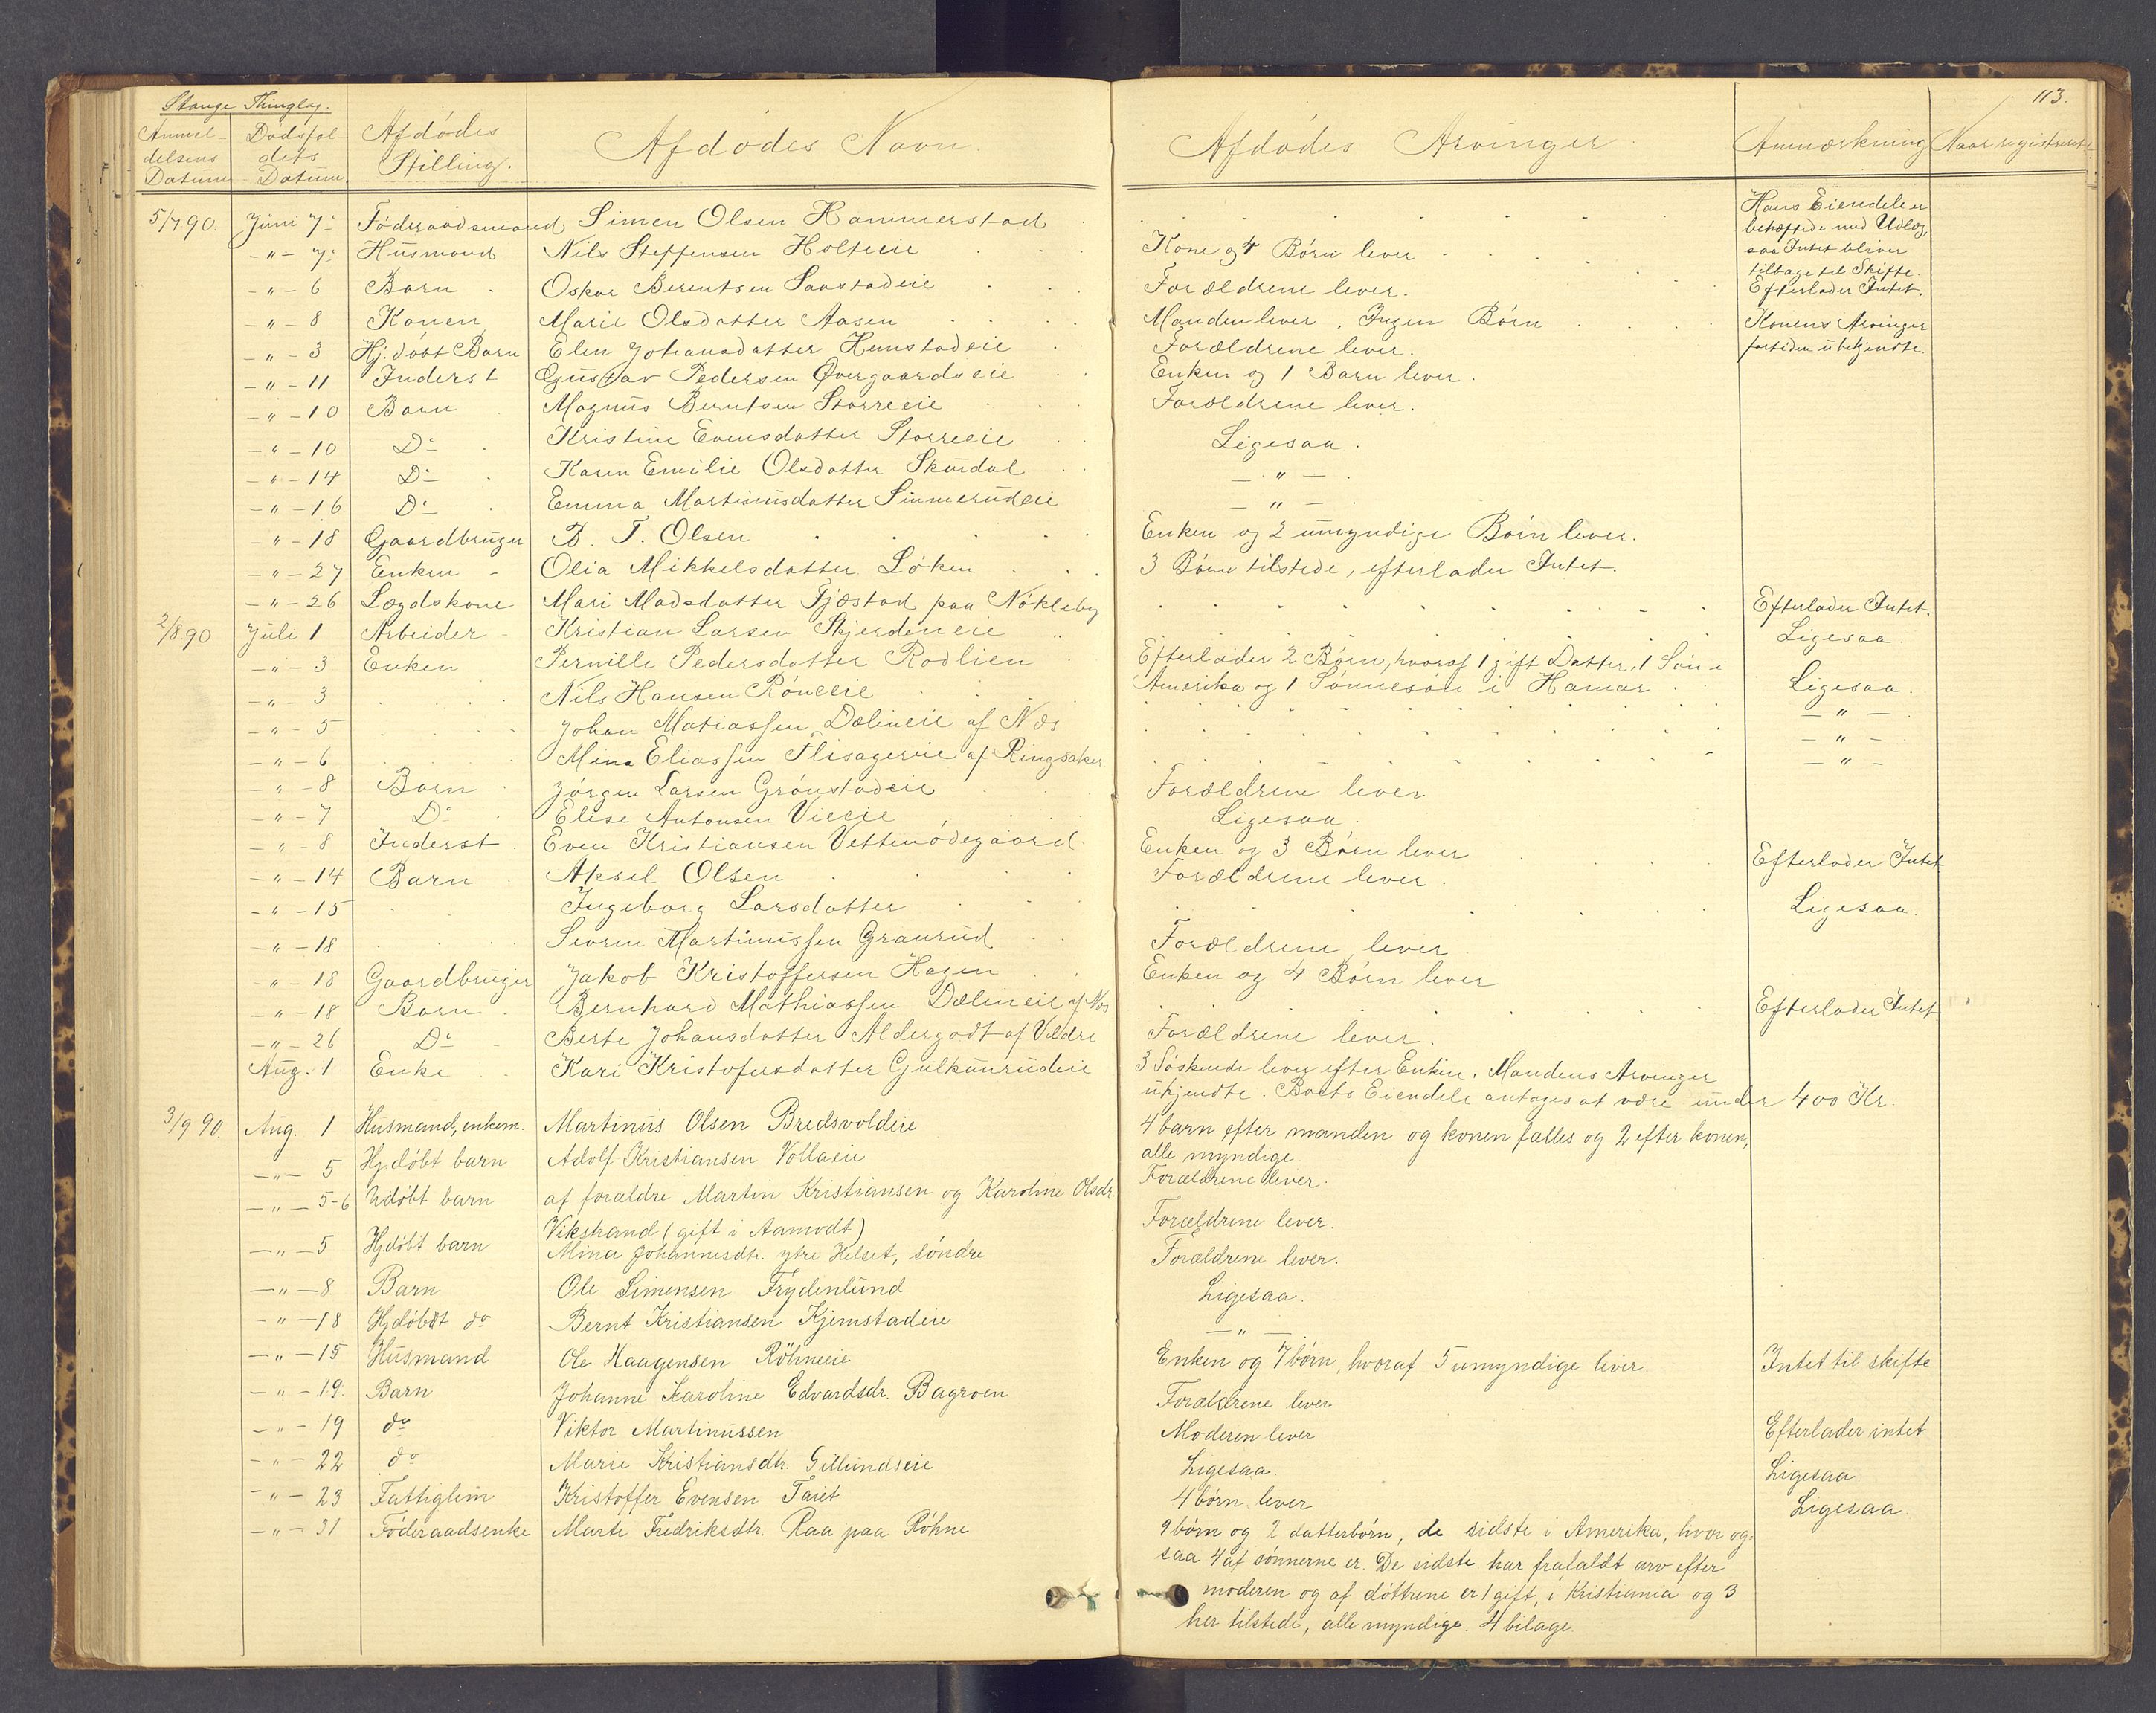 Stange Thinglag.
113.
Anmel-delsens Datum Dødsfal-dets Datum. Afdødes Stilling. Afdødes Navn. Afdødes Arvinger. Anmærkning Naar registreret
5/7 90. Juni 7. Föderaadsmand Simen Olsen Hammerstad Hans Eiendele er
behæftede med Udlæg,
saa Intet bliver
tilbage til Skifte.
-"- 7. Husmand Nils Steffensen Holteeie Kone og 4 Børn lever
-"- 6 Barn Oskar Berentsen Saastadeie Forældrene lever. Efterlader Intet.
-"- 8 Konen Marie Olsdatter Aasen Manden lever. Ingen Børn Konens Arvinger
fortiden ubekjendte.
-"- 3 Hj. døbt Barn Elen Johansdatter Hemstadeie Forældrene lever.
-"- 11 Inderst Gustav Pedersen Øvergaardseie Enken og 1 Barn lever.
-"- 10 Barn Magnus Berntsen Storreeie Forældrene lever.
-"- 10 Do Kristine Evensdatter Storreeie Ligesaa.
-"- 14 Do Karen Emilie Olsdatter Skurdal -"-
-"- 16 Do Emma Martinusdatter Simerudeie -"-
-"- 18 Gaardbruger B. T. Olsen Enken og 2 umyndige Børn lever.
-"- 27 Enken Olia Mikkelsdatter Løken 3 Børn tilstede, efterlader Intet.
-"- 26 Lægdskone Mari Madsdatter Fjæstad paa Nøkleby Efterlader Intet.
2/8 90 Juli 1 Arbeider Kristian Larsen Skjerdeneie Ligesaa.
-"- 3 Enken Pernille Pedersdatter Rodlien Efterlader 2 Børn, hvoraf 1 gift Datter, 1 Søn i
Amerika og 1 Sønnesøn i Hamar
-"- 3 Nils Hansen Røneeie Ligesaa.
-"- 5 Johan Matiassen Dælineie af Næs -"-
-"- 6 Mina Eliassen Flisagereie af Ringsaker -"-
-"-
-"- 8 Barn Jørgen Larsen Grønstadeie Forældrene lever
-"- 7 Do Elise Antonsen Vieeie Ligesaa.
-"- 8 Inderst Even Kristiansen Vettenødegaard Enken og 3 Børn lever
-"- 14 Barn Aksel Olsen Forældrene lever. Efterlader Intet
-"- 15 Ingeborg Larsdatter Ligesaa.
-"- 18 Sevrin Martinussen Granrud Forældrene lever
-"- 18 Gaardbruger Jakob Kristoffersen Hagen Enken og 4 Børn lever
-"- 18 Barn Bernhard Mathiassen Dælineie af Næs Efterlader Intet
-"- 26 Do Berte Johansdatter Aldergodt af Veldre Forældrene lever.
Aug. 1 Enke Kari Kristofersdatter Gulkunrudeie 3 Søskende lever efter Enken. Mandens Arvinger
ukjendte. Boets Eiendele antages at være under 400 Kr.
3/9 90. Aug. 1 Husmand, enkem. Martinus Olsen Bredsvoldeie 4 barn efter manden og konen fælles og 2 efter konen,
alle myndige
-"- 5 Hjdøbt barn Adolf Kristiansen Vollaeie Forældrene lever.
-"- 5-6 Udøbt barn af forældre Martin Kristiansen og Karoline Olsdr.
Vikstrand (gift i Aamodt) Forældrene lever.
-"- 5 Hjdøbt barn Mina Johannesdtr. ytre Helset, søndre Forældrene lever.
-"- 8 Barn Ole Simensen Frydenlund Ligesaa.
-"- 18 Hjdøbt do Bernt Kristiansen Kjemstadeie -"-
-"- 15 Husmand Ole Haagensen Röhneeie Enken og 7 børn, hvoraf 5 umyndige liver. Intet til skifte
-"- 19. Barn Johanne Karoline Edvardsdr. Bagroen Forældrene lever
-"- 19 do Viktor Martinussen Moderen lever Efterlader intet
-"- 22 do Marie Kristiansdtr. Gillundseie Ligesaa. Ligesaa
-"- 23 Fattiglem Kristoffer Evensen Taret 4 børn lever Ligesaa
-"- 31 Föderaadsenke Marte Fredriksdtr. Raa paa Röhne 9 børn og 2 datterbørn, de sidste i Amerika, hvor og-
saa 4 af sønnerne er. De sidste har frafaldt arv efter
moderen og af døttrene er 1 gift, i Kristiania og 3
her tilstede, alle myndige. 4 bilage.